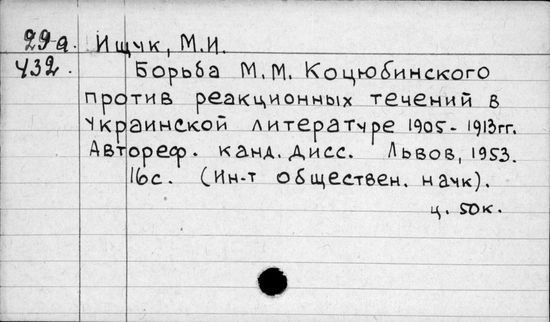 29а. Ищук, М.И.
432. Борьба М.М. Коцюбинского
против реакционных течений в
Украинской литературе 1905-1913гг.
Автореф. канд. дисс. Львов, 1953.
16с. (Ин-т обществен. наук).
ц. 50к.